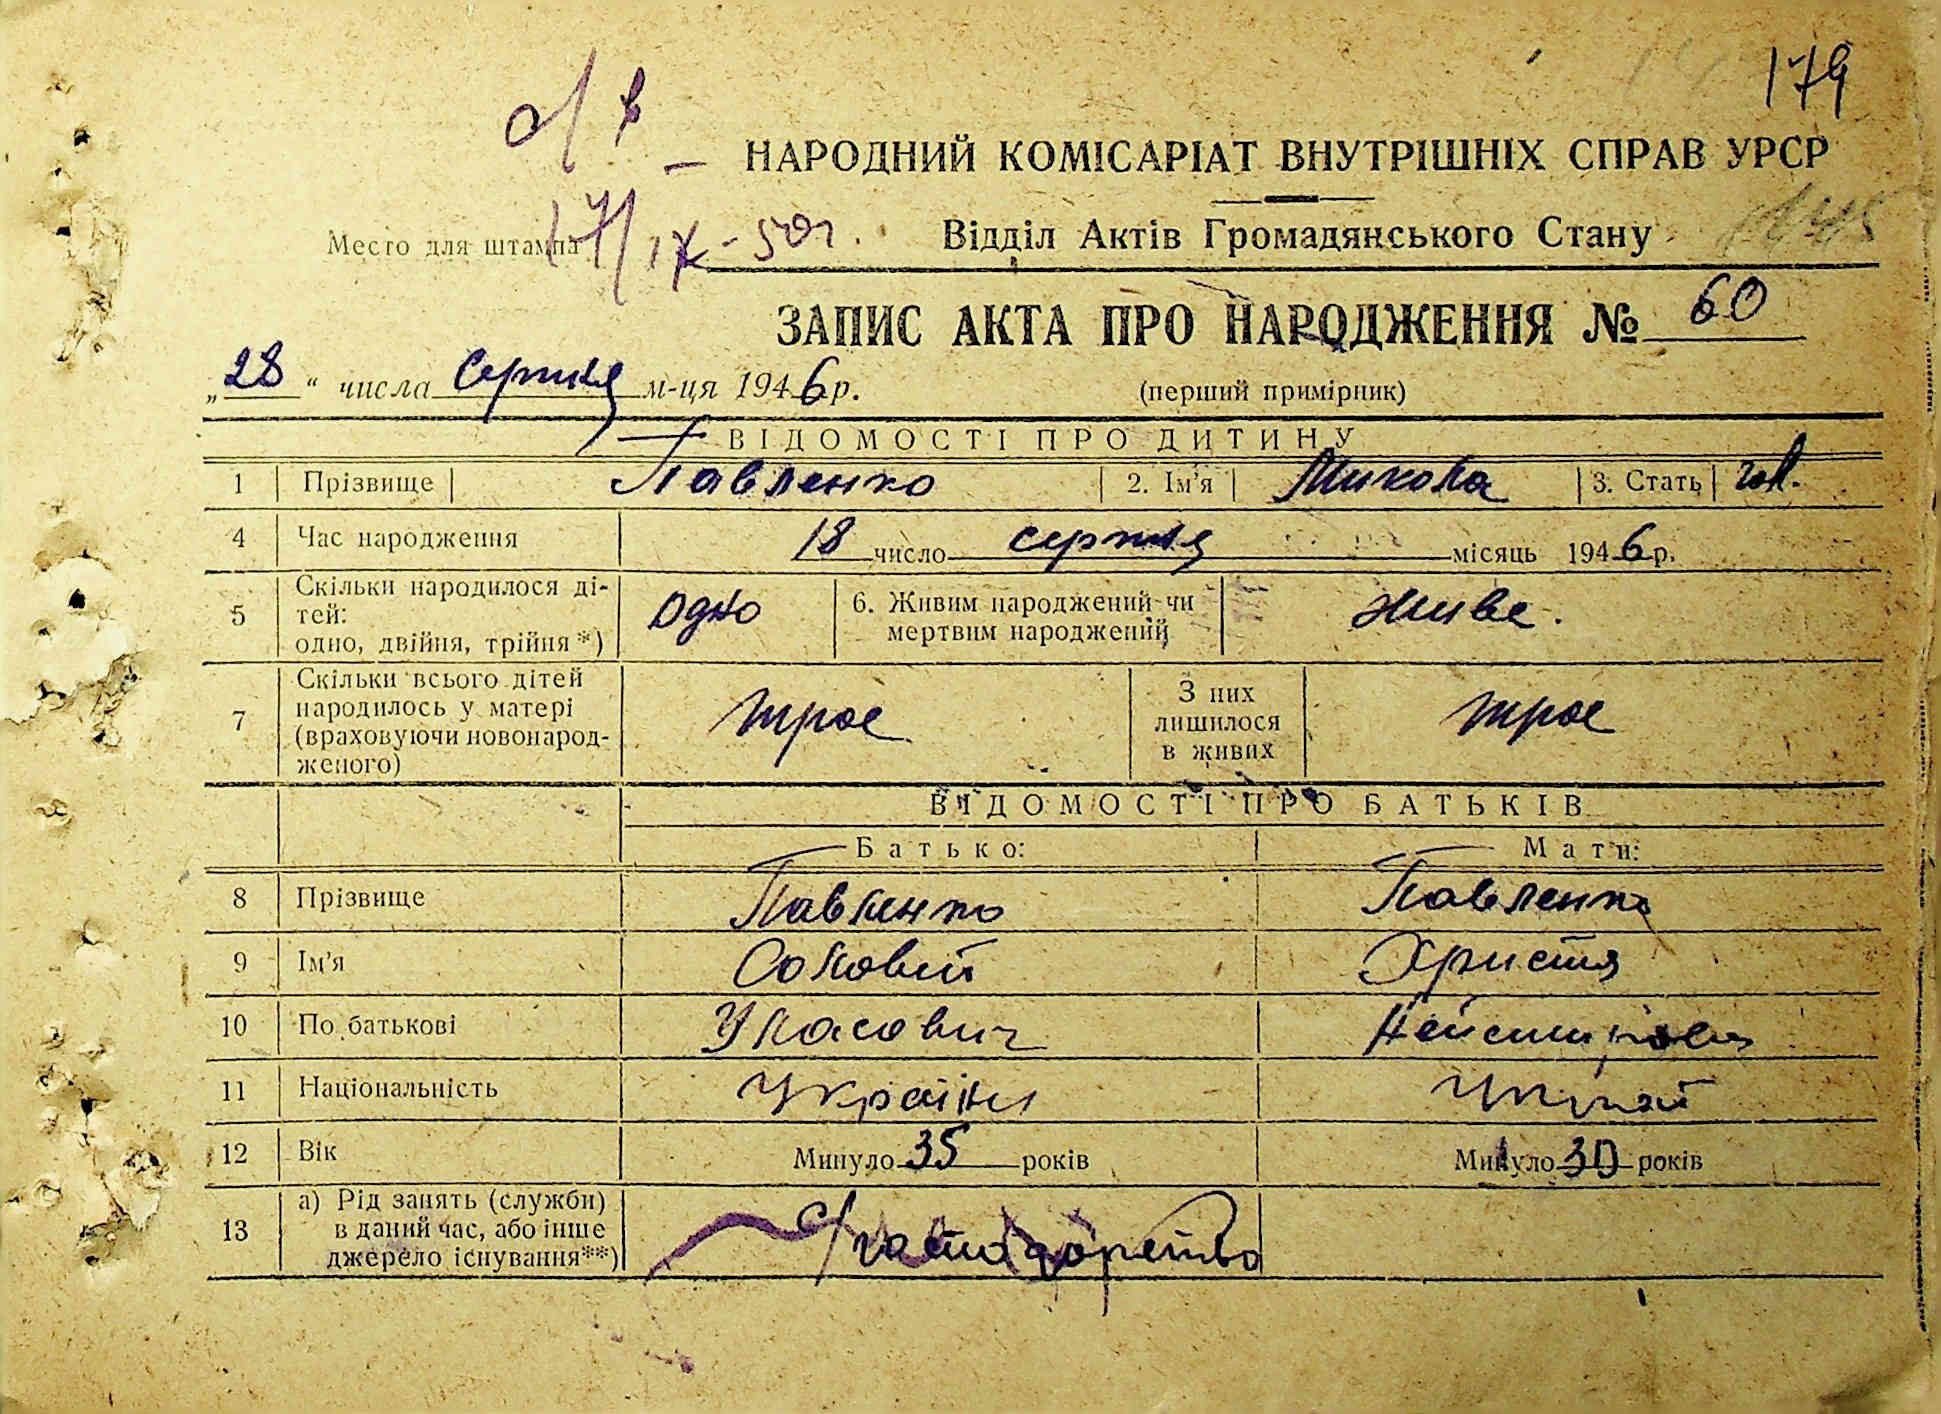 179
17/IX-50г.
НАРОДНИЙ КОМІСАРІАТ ВНУТРІШНІХ СПРАВ УРСР
Место для штампа
Відділ Актів Громадянського Стану
ЗАПИС АКТА ПРО НАРОДЖЕННЯ № 60
„28“ числа серпня м-ця 1946 р. (перший примірник)
ВІДОМОСТІ ПРО ДИТИНУ
1 Прізвище Павленко 2. Ім'я Микола 3. Стать чол.
4 Час народження 18 число серпня місяць 1946 р.
5 Скільки народилося дітей: одно, двійня, трійня*) одно 6. Живим народжений чи мертвим народжений живе.
7 Скільки всього дітей народилось у матері (враховуючи новонародженого) троє З них лишилося в живих троє
ВІДОМОСТІ ПРО БАТЬКІВ
Батько: Мати:
8 Прізвище Павленко Павленко
9 Ім'я Соловей Христя
10 По батькові Уласович
11 Національність Україн
12 Вік Минуло 35 років Минуло 30 років
13 а) Рід занять (служби) в даний час, або інше джерело існування**) с/господарство